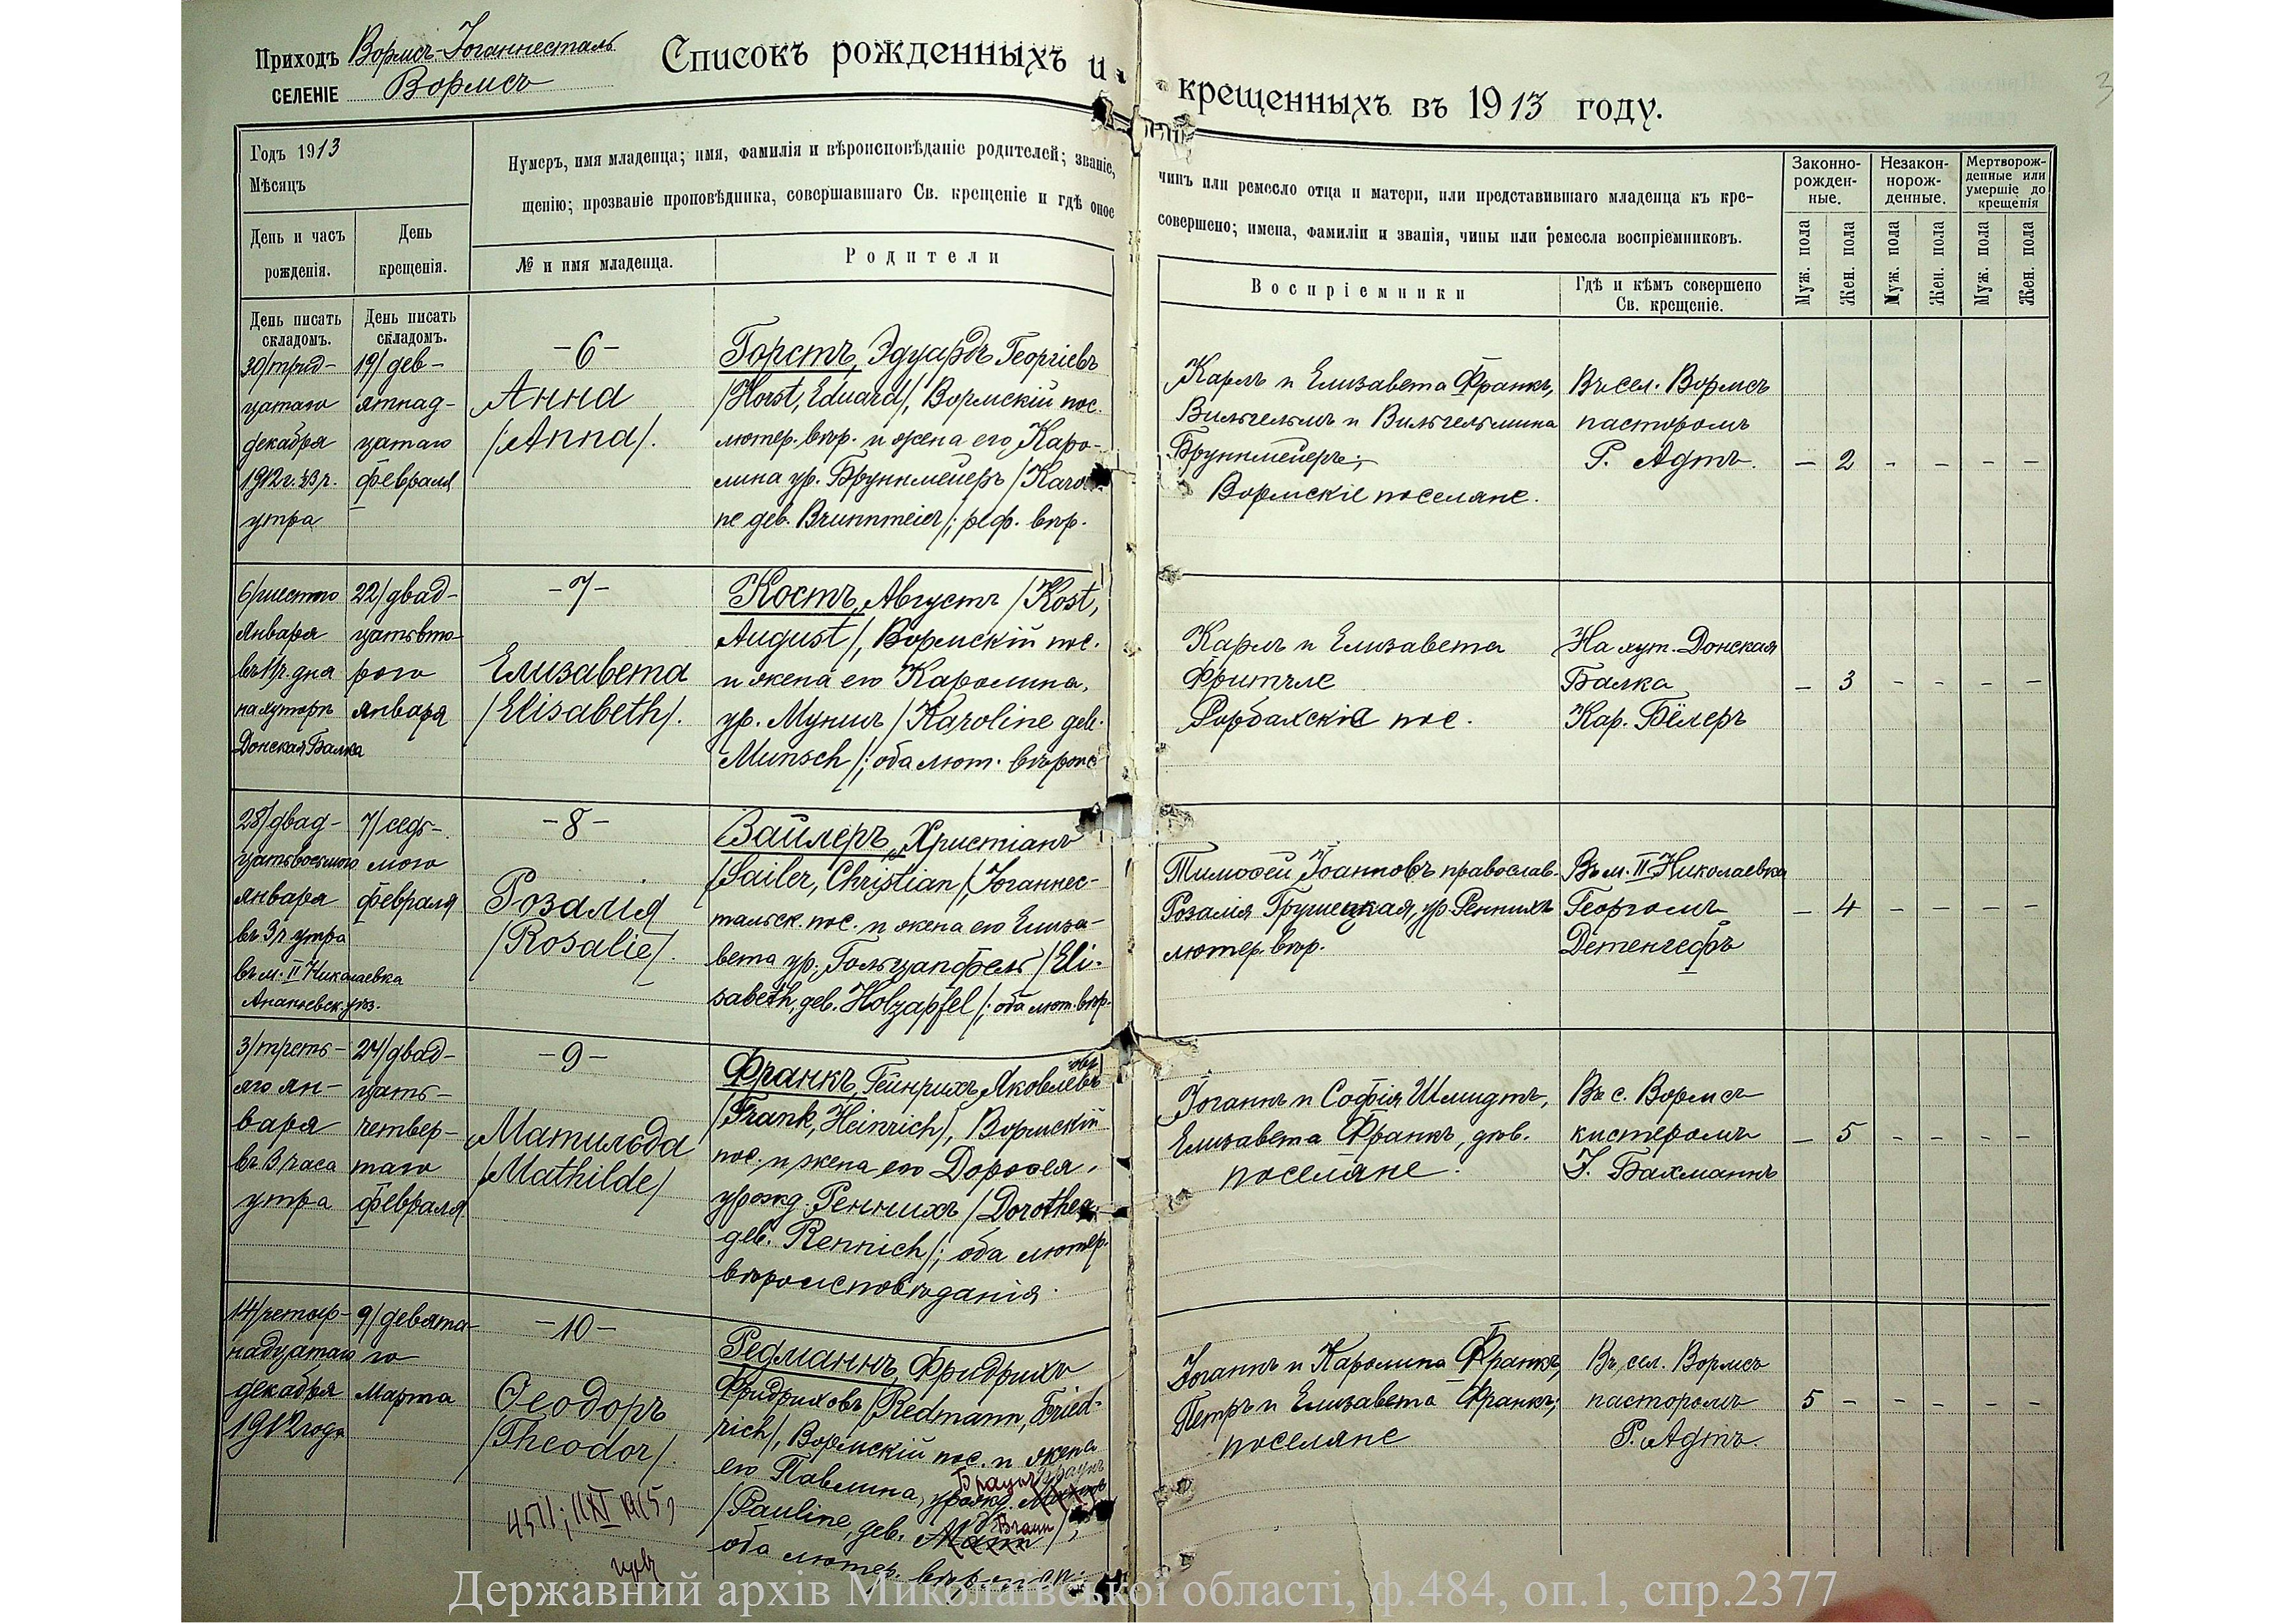 Приходъ Вормсъ-Іоганнесталь
СЕЛЕНІЕ Вормсъ
Списокъ рожденныхъ и крещенныхъ въ 1913 году.
3
Годъ 1913
Мѣсяцъ
День и часъ рожденія.
День крещенія.
Нумеръ, имя младенца; имя, фамилія и вѣроисповѣданіе родителей; званіе, чинъ или ремесло отца и матери, или представившаго младенца къ кре-
щенію; прозваніе проповѣдника, совершавшаго Св. крещеніе и гдѣ оное совершено; имена, фамиліи и званія, чины или ремесла воспріемниковъ.
№ и имя младенца.
Родители
Воспріемники
Гдѣ и кѣмъ совершено
Св. крещеніе.
Законно-
рожден-
ные.
Незакон-
норож-
денные.
Мертворож-
денные или
умершіе до
крещенія
Муж. пола
Жен. пола
Муж. пола
Жен. пола
Муж. пола
Жен. пола
День писать
складомъ.
День писать
складомъ.
30/трид-
цатаго
декабря
1912 г. в 3 ч.
утра
19/дев-
ятнад-
цатаго
февраля
-6-
Анна
/Anna/.
Горстъ, Эдуардъ Георгіевъ
/Horst, Eduard/, Вормскій пос.
лютер. вѣр. и жена его Каро-
лина ур. Бруннмейеръ /Karoli-
ne geb. Brunnmeier/; реф. вѣр.
Карлъ и Елизавета Франкъ,
Вильгельмъ и Вильгельмина
Бруннмейеръ;
Вормскіе поселяне.
Въ сел. Вормсъ
пасторомъ
Р. Адтъ.
- 2 - - - -
6/шестого
Января
въ 11 ч. дня
на хуторѣ
Донская Балка
22/двад-
цатьвто-
рого
января
-7-
Елизавета
/Elisabeth/.
Костъ, Августъ /Kost,
August/, Вормскій пос.
и жена его Каролина,
ур. Муншъ /Karoline geb.
Munsch/; оба лют. вѣроис
Карлъ и Елизавета
Фритчле
Рорбахскіе пос.
На хут. Донская
Балка
Кар. Бёлеръ
- 3 - - - -
28/двад-
цатьвосьмого
января
въ 3 ч утра
въ м. II Николаевка
Ананьевск. уѣз.
7/седь-
мого
февраля
-8-
Розалія
/Rosalie/.
Зайлеръ, Христіанъ
/Sailer, Christian/, Іоганнес-
тальск. пос. и жена его Елиза-
вета ур. Гольцапфель /Eli-
sabeth, geb. Holzapfel/; оба лют. вѣр.
Тимофей Іоанновъ православ.
Розалія Грушецкая, ур. Реннихъ
лютер. вѣр.
Въ м. II Николаевка
Георгомъ
Детенгефъ
- 4 - - - -
3/треть-
яго ян-
варя
въ 3 часа
утра
24/двад-
цать-
четвер-
таго
февраля
-9-
Матильда
/Mathilde/
Франкъ, Гейнрихъ Яковлевъ
/Frank, Heinrich/, Вормскій
пос. и жена его Доротея,
урожд. Реннихъ /Dorothea
geb. Rennich/; оба лютер.
вѣроисповѣданія.
Іоганнъ и Софія Шмидтъ,
Елизавета Франкъ, дѣв.
поселяне.
Въ с. Вормсъ
кистеромъ
І. Бахманнъ
- 5 - - - -
14/четыр-
надцатаго
декабря
1912 года
9/девята-
го
Марта
-10-
Ѳеодоръ
/Theodor/.
4511; 11 XI 1915,
Редманнъ, Фридрихъ
Фридриховъ /Redmann, Fried-
rich/, Вормскій пос. и жена
его Павлина, урожд. Браунъ
/Pauline, geb. Mann Braun/;
оба лютер. вѣроисп.
Іоганнъ и Каролина Франкъ,
Петръ и Елизавета Франкъ;
поселяне
Въ сел. Вормсъ
пасторомъ
Р. Адтъ.
5 - - - - -
Державний архів Миколаївської області, ф.484, оп.1, спр.2377